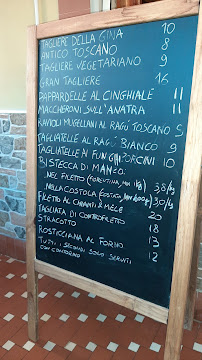 TAGLIERE DELLA GINA 10
ANTICO TOSCANO 8
TAGLIERE VEGETARIANO 9
GRAN TAGLIERE 16
PAPPARDELLE AL CINGHIALE 11
MACCHERONI SULL'ANATRA 11
RAVIOLI MUGELLANI AL RAGÙ TOSCANO 9
TAGLIATELLE AL RAGÙ BIANCO 9
TAGLIATELLE AI FUNGHI PORCINI 10
BISTECCA DI MANZO
NEL FILETTO (FIORENTINA, MIN 1Kg) 3,8/hg
NELLA COSTOLA (COSTATA, MIN 800gr) 3,0/hg
FILETTO AL CHIANTI & MELE 20
TAGLIATA DI CONTROFILETTO 18
STRACOTTO 13
ROSTICCIANA AL FORNO 12
TUTTI I SECONDI SONO SERVITI
CON CONTORNO